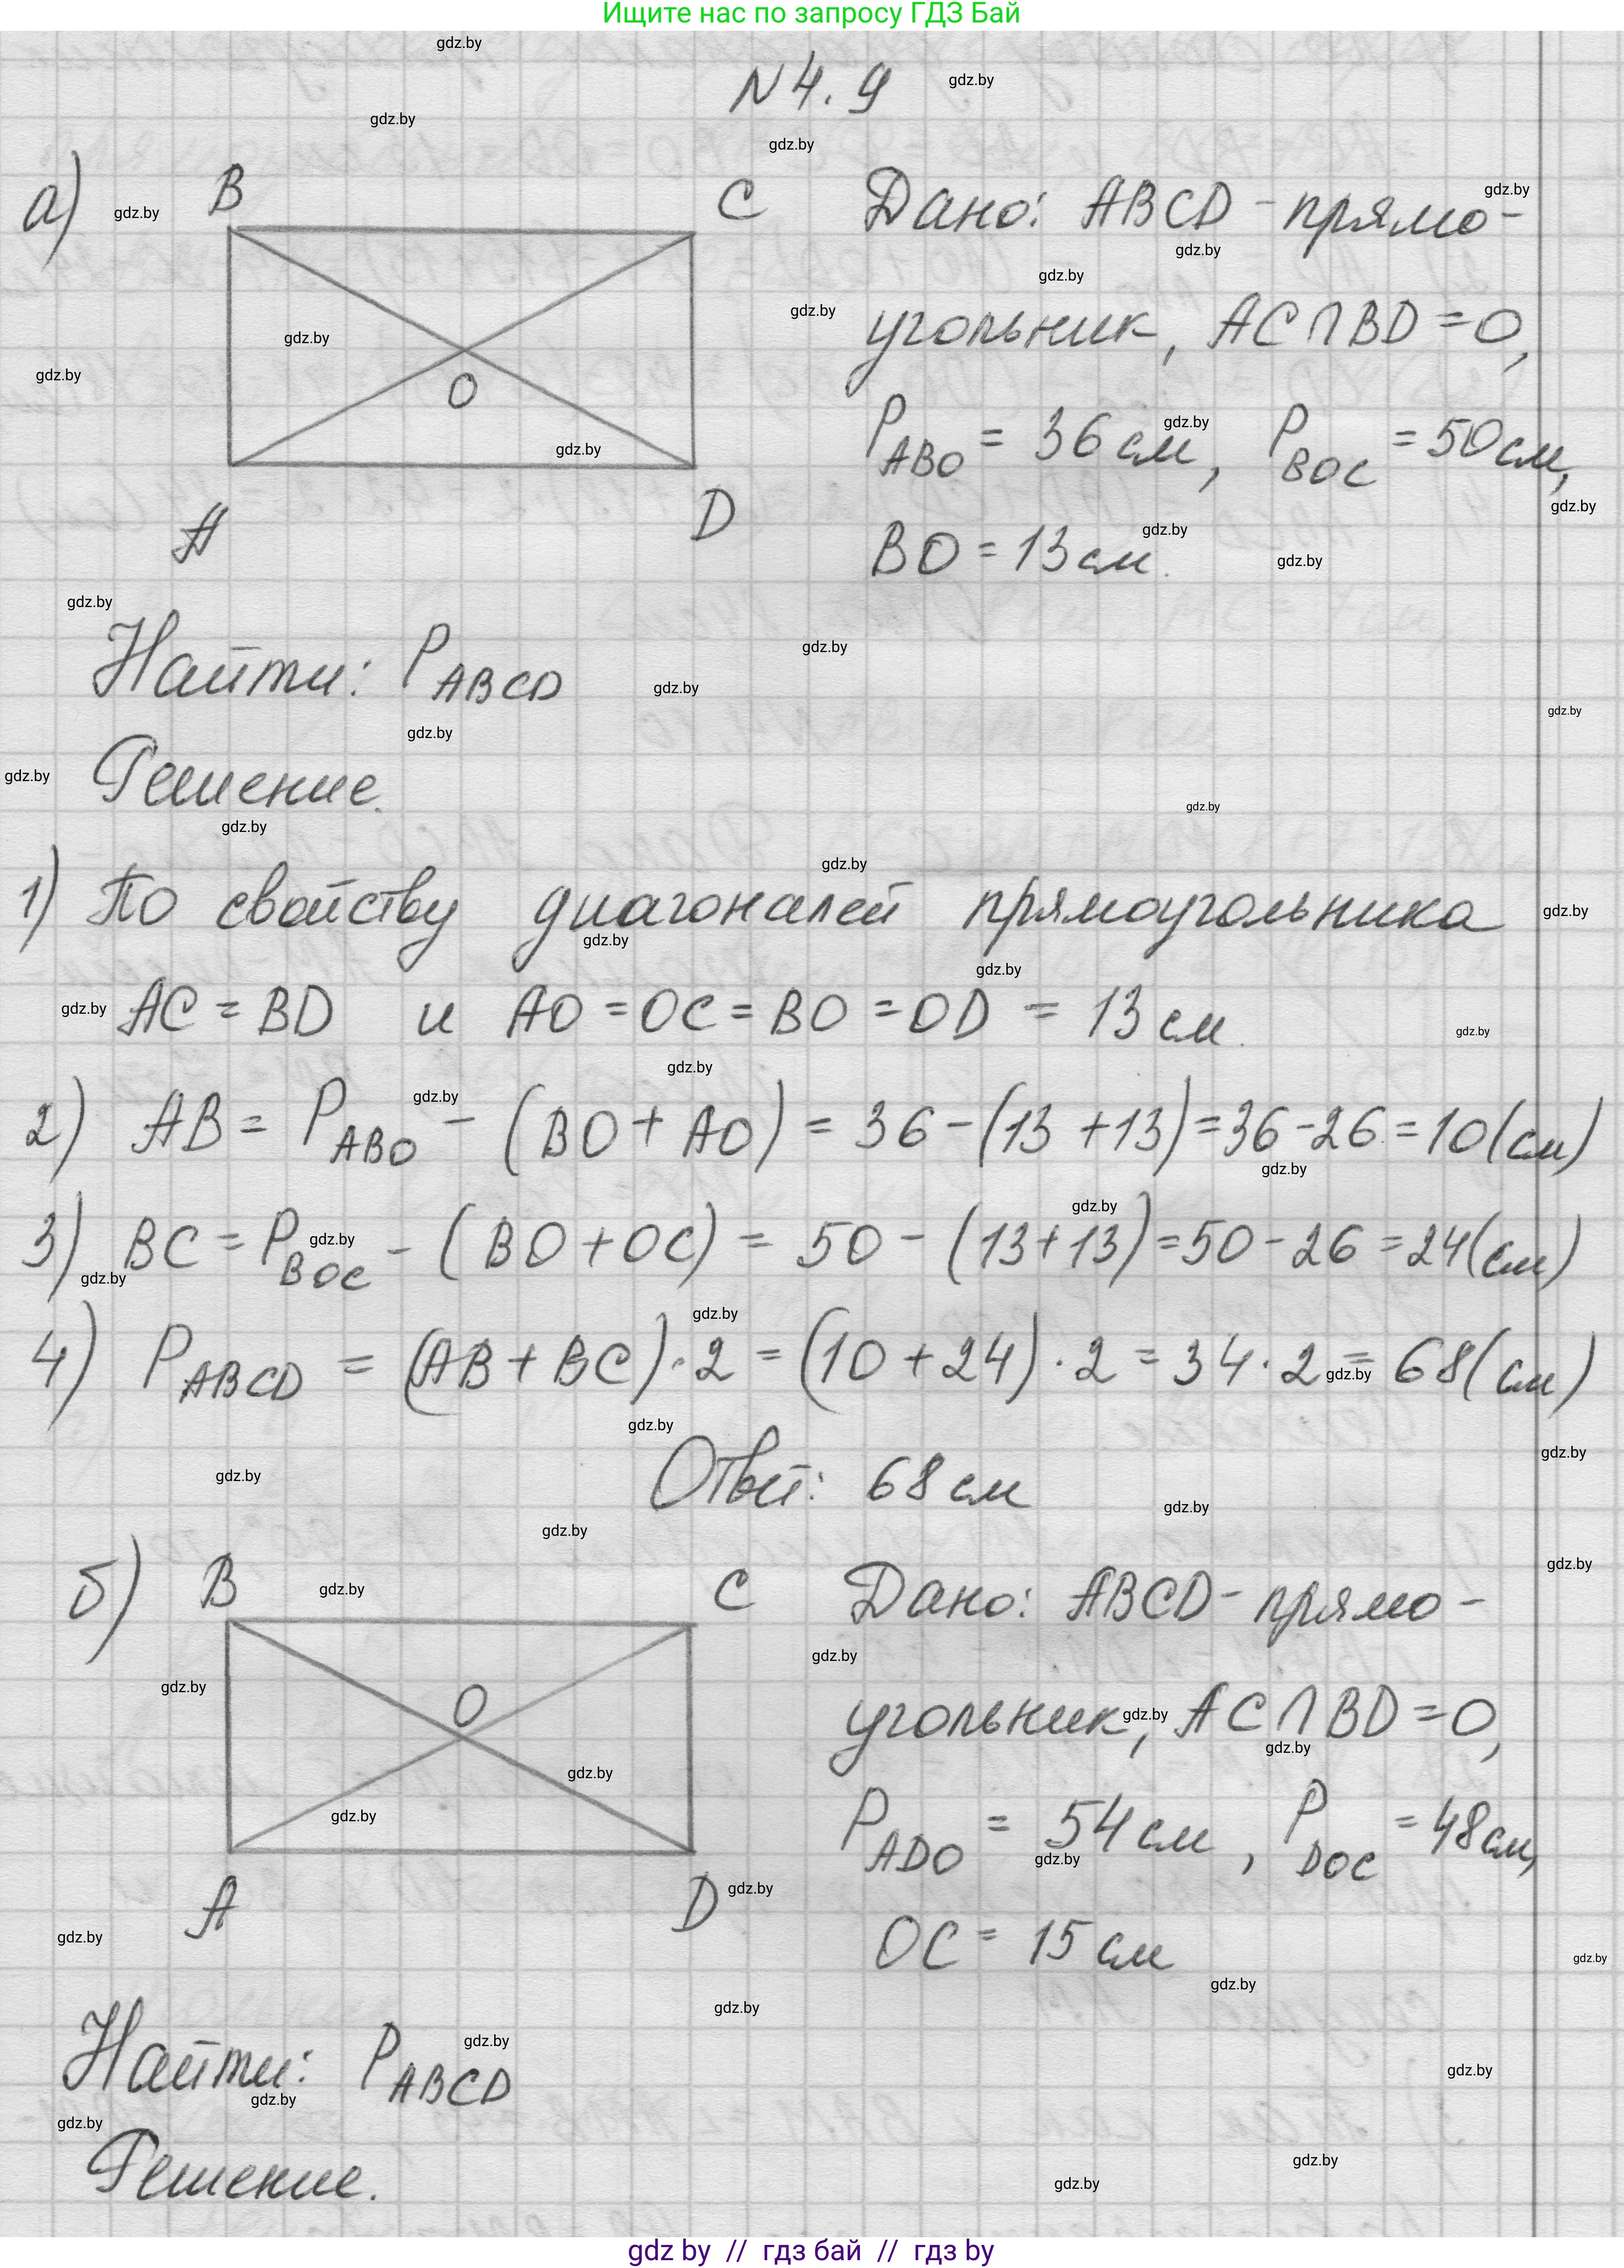 Ищите нас по запросу ГДЗ Бай
N 4.9
а)
B
C
O
A
D
Дано: ABCD - прямо-
угольник, AC∩BD = O,
P ABO = 36 см, P BOC = 50 см,
BO = 13 см.
Найти: P ABCD
Решение.
1) По свойству диагоналей прямоугольника
AC = BD и AO = OC = BO = OD = 13 см.
2) AB = P ABO - (BO + AO) = 36 - (13 + 13) = 36 - 26 = 10 (см)
3) BC = P BOC - (BO + OC) = 50 - (13 + 13) = 50 - 26 = 24 (см)
4) P ABCD = (AB + BC) · 2 = (10 + 24) · 2 = 34 · 2 = 68 (см)
Ответ: 68 см
б)
B
C
O
A
D
Дано: ABCD - прямо-
угольник, AC∩BD = O,
P ADO = 54 см, P DOC = 48 см,
OC = 15 см
Найти: P ABCD
Решение.
gdz by // гдз бай // гдз by